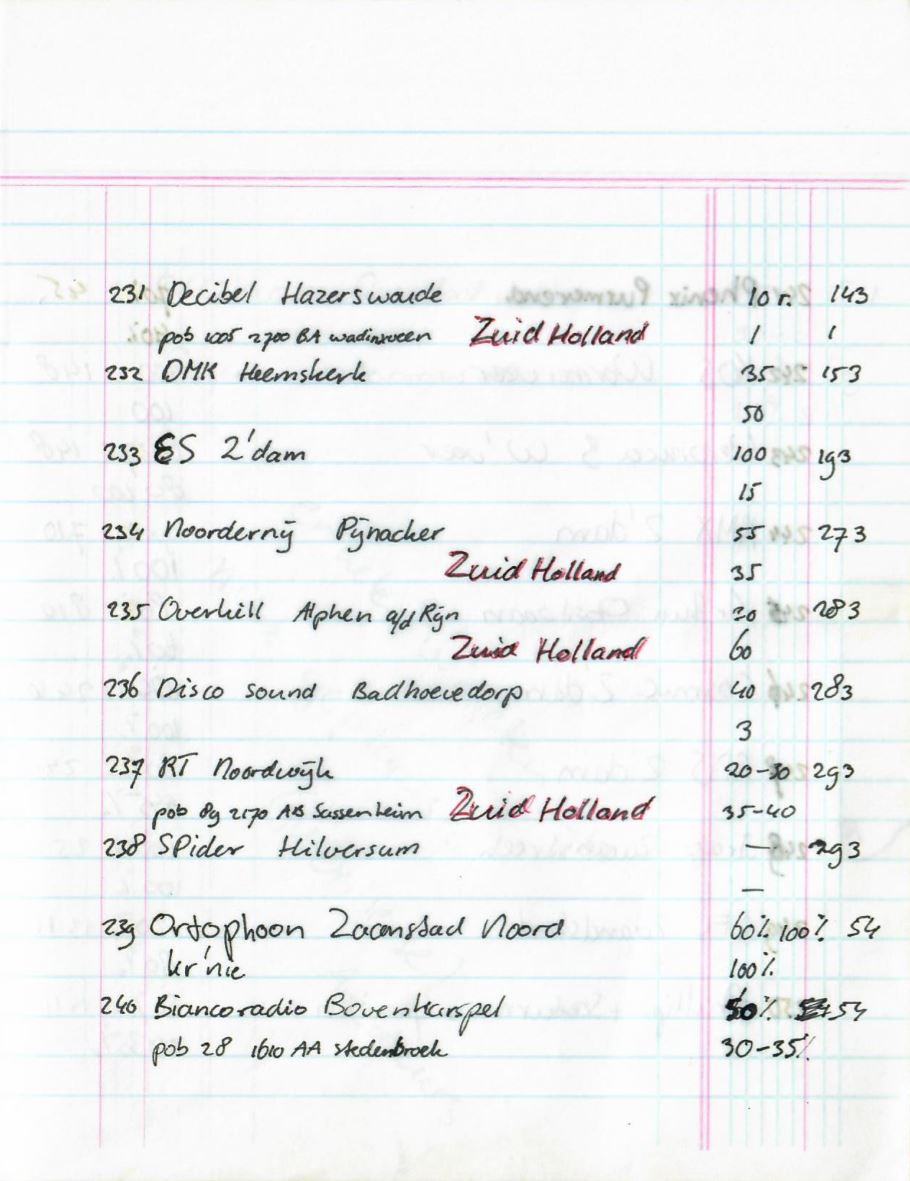 231 Decibel Hazerswoude 10 r. 143
pob 1005 2700 BA wadinxveen Zuid Holland 1 1
232 DMK Heemskerk 35 153
50
233 ES Z'dam 100 193
15
234 Noordernÿ Pÿnacker 55 273
Zuid Holland 35
235 Overhill Alphen a/d Rÿn 20 283
Zuid Holland 60
236 Disco sound Badhoevedorp 40 283
3
237 RT Noordwÿk 20-30 293
pob 89 2170 AB Sassenheim Zuid Holland 35-40
238 SPider Hilversum — 293
—
239 Ortophoon Zaanstad Noord 60% 100% 54
kr'nie 100%
240 Biancoradio Bovenkarspel 50% 54
pob 28 1610 AA stedenbroek 30-35%